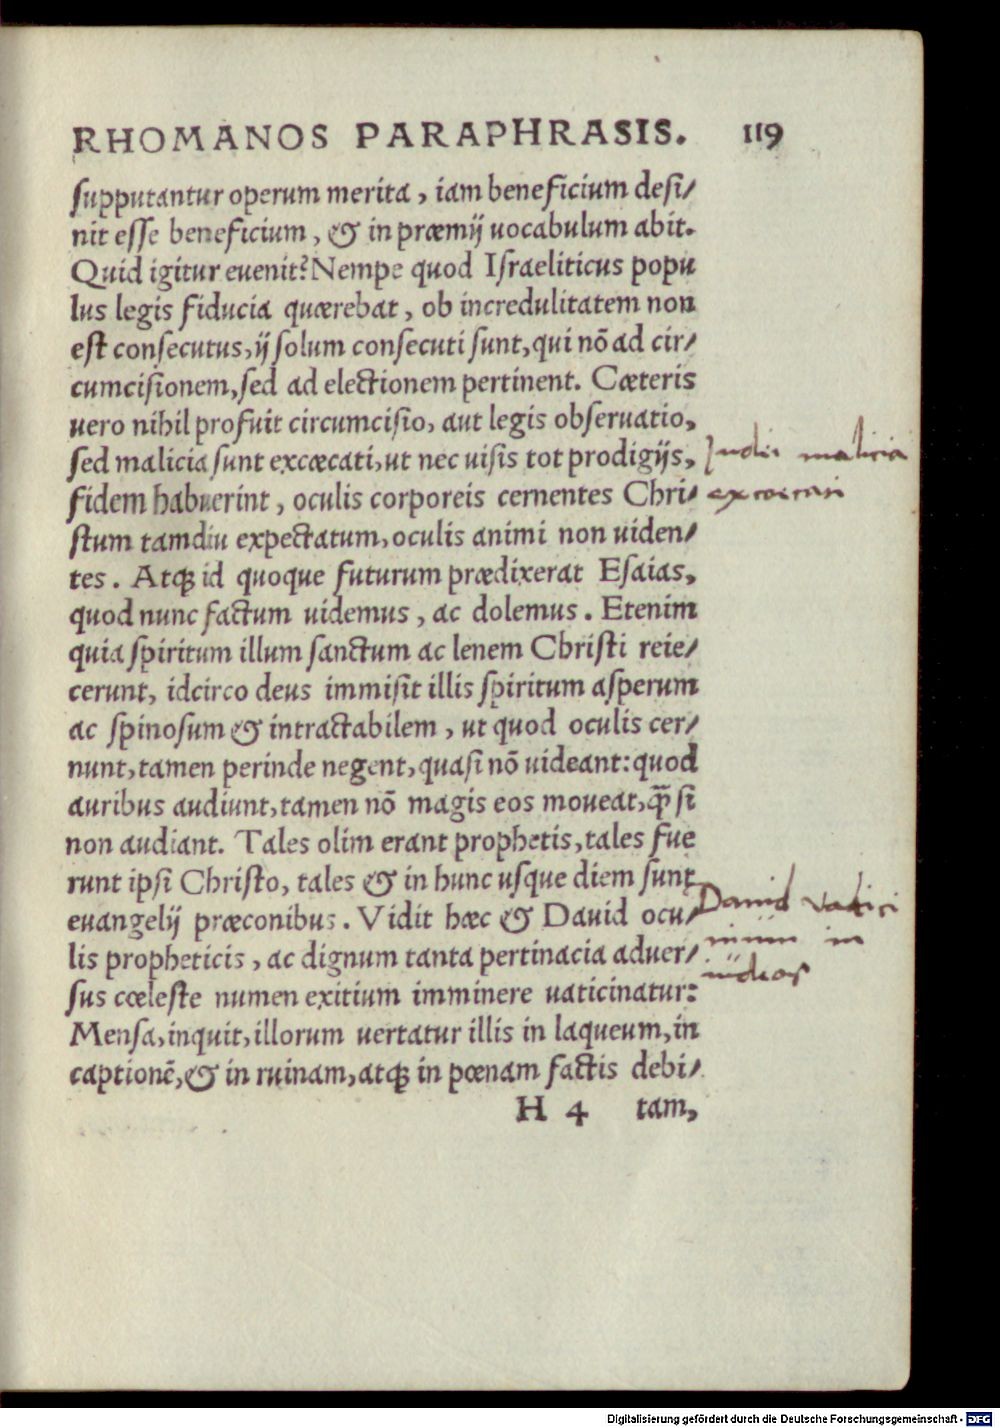 RHOMANOS PARAPHRASIS. 119
supputantur operum merita, iam beneficium desi/
nit esse beneficium, & in præmij uocabulum abit.
Quid igitur euenit? Nempe quod Israeliticus popu
lus legis fiducia quærebat, ob incredulitatem non
est consecutus, ij solum consecuti sunt, qui nõ ad cir/
cumcisionem, sed ad electionem pertinent. Cæteris
uero nihil profuit circumcisio, aut legis obseruatio,
sed malicia sunt excæcati, ut nec uisis tot prodigijs,
Iudei malicia
fidem habuerint, oculis corporeis cernentes Chri/
excaecati
stum tamdiu expectatum, oculis animi non uiden/
tes. Atq; id quoque futurum prædixerat Esaias,
quod nunc factum uidemus, ac dolemus. Etenim
quia spiritum illum sanctum ac lenem Christi reie/
cerunt, idcirco deus immisit illis spiritum asperum
ac spinosum & intractabilem, ut quod oculis cer/
nunt, tamen perinde negent, quasi nõ uideant: quod
auribus audiunt, tamen nõ magis eos moueat, q̃ si
non audiant. Tales olim erant prophetis, tales fue
runt ipsi Christo, tales & in hunc usque diem sunt
Dauid vatici
euangelij præconibus. Vidit hæc & Dauid ocu/
nium in
lis propheticis, ac dignum tanta pertinacia aduer/
iudeos
sus cœleste numen exitium imminere uaticinatur:
Mensa, inquit, illorum uertatur illis in laqueum, in
captionẽ, & in ruinam, atq; in pœnam factis debi/
H 4 tam,
Digitalisierung gefördert durch die Deutsche Forschungsgemeinschaft - DFG